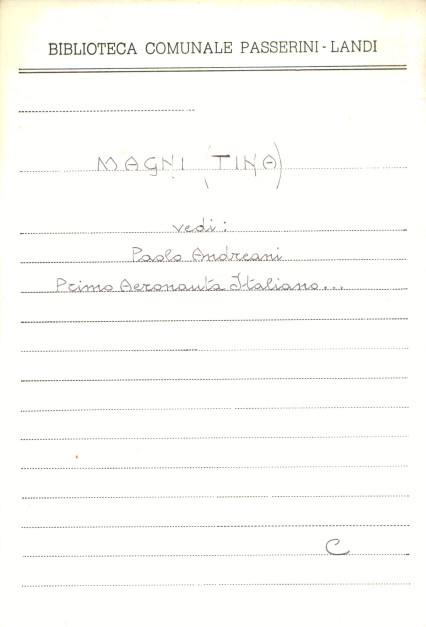 BIBLIOTECA COMUNALE PASSERINI - LANDI
MAGNI (TINA)
vedi:
Paolo Andreani
Primo Aeronauta Italiano...
C